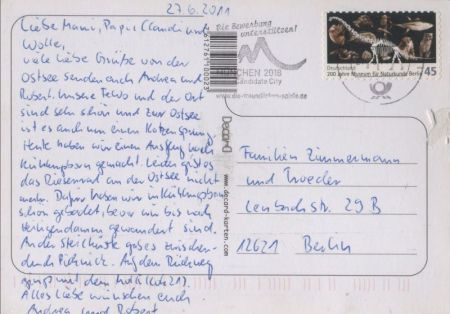 27.6.2011
Liebe Mami, Papi, Claudi und
Wolle,
viele liebe Grüße von der
Ostsee senden euch Andrea und
Robert. Unsere FeWo und der Ort
sind sehr schön und zur Ostsee
ist es auch nur einen Katzensprung.
Heute haben wir einen Ausflug nach
Kühlungsborn gemacht. Leider gibt es
das Riesenrad an der Ostsee nicht
mehr. Dafür haben wir in Kühlungsborn
schon gebadet, bevor wir bis nach
Heiligendamm gewandert sind.
An der Steilküste gab es zwischen-
durch Picknick. Auf dem Rückweg
ging's mit dem Molli
Alles Liebe wünschen euch
Andrea und Robert
Die Bewerbung
unterstützen!
MÜNCHEN 2018
Candidate City
Deutschland
200 Jahre Museum für Naturkunde Berlin
45
www.decord-karten.com
Familien Zimmermann
und Troeder
Lenbachstr. 29 B
12621 Berlin